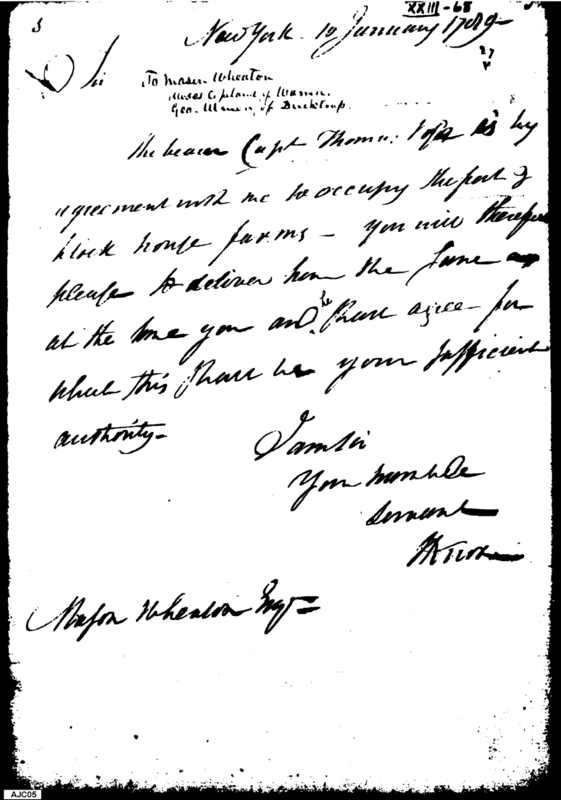 XXIII-68
New York 10 January 1789
27
Sir
To Mason Wheaton
Moses Copland of Warren
Geo. of
The bearer Capt Thomas is by
agreement with me to occupy the part of
block house farms – you will therefore
please to deliver him the same
at the time you and he shall agree – for
which this shall be your sufficient
authority –
I am Sir
Your humble
Servant
HKnox
Mason Wheaton Esqr
AJC05